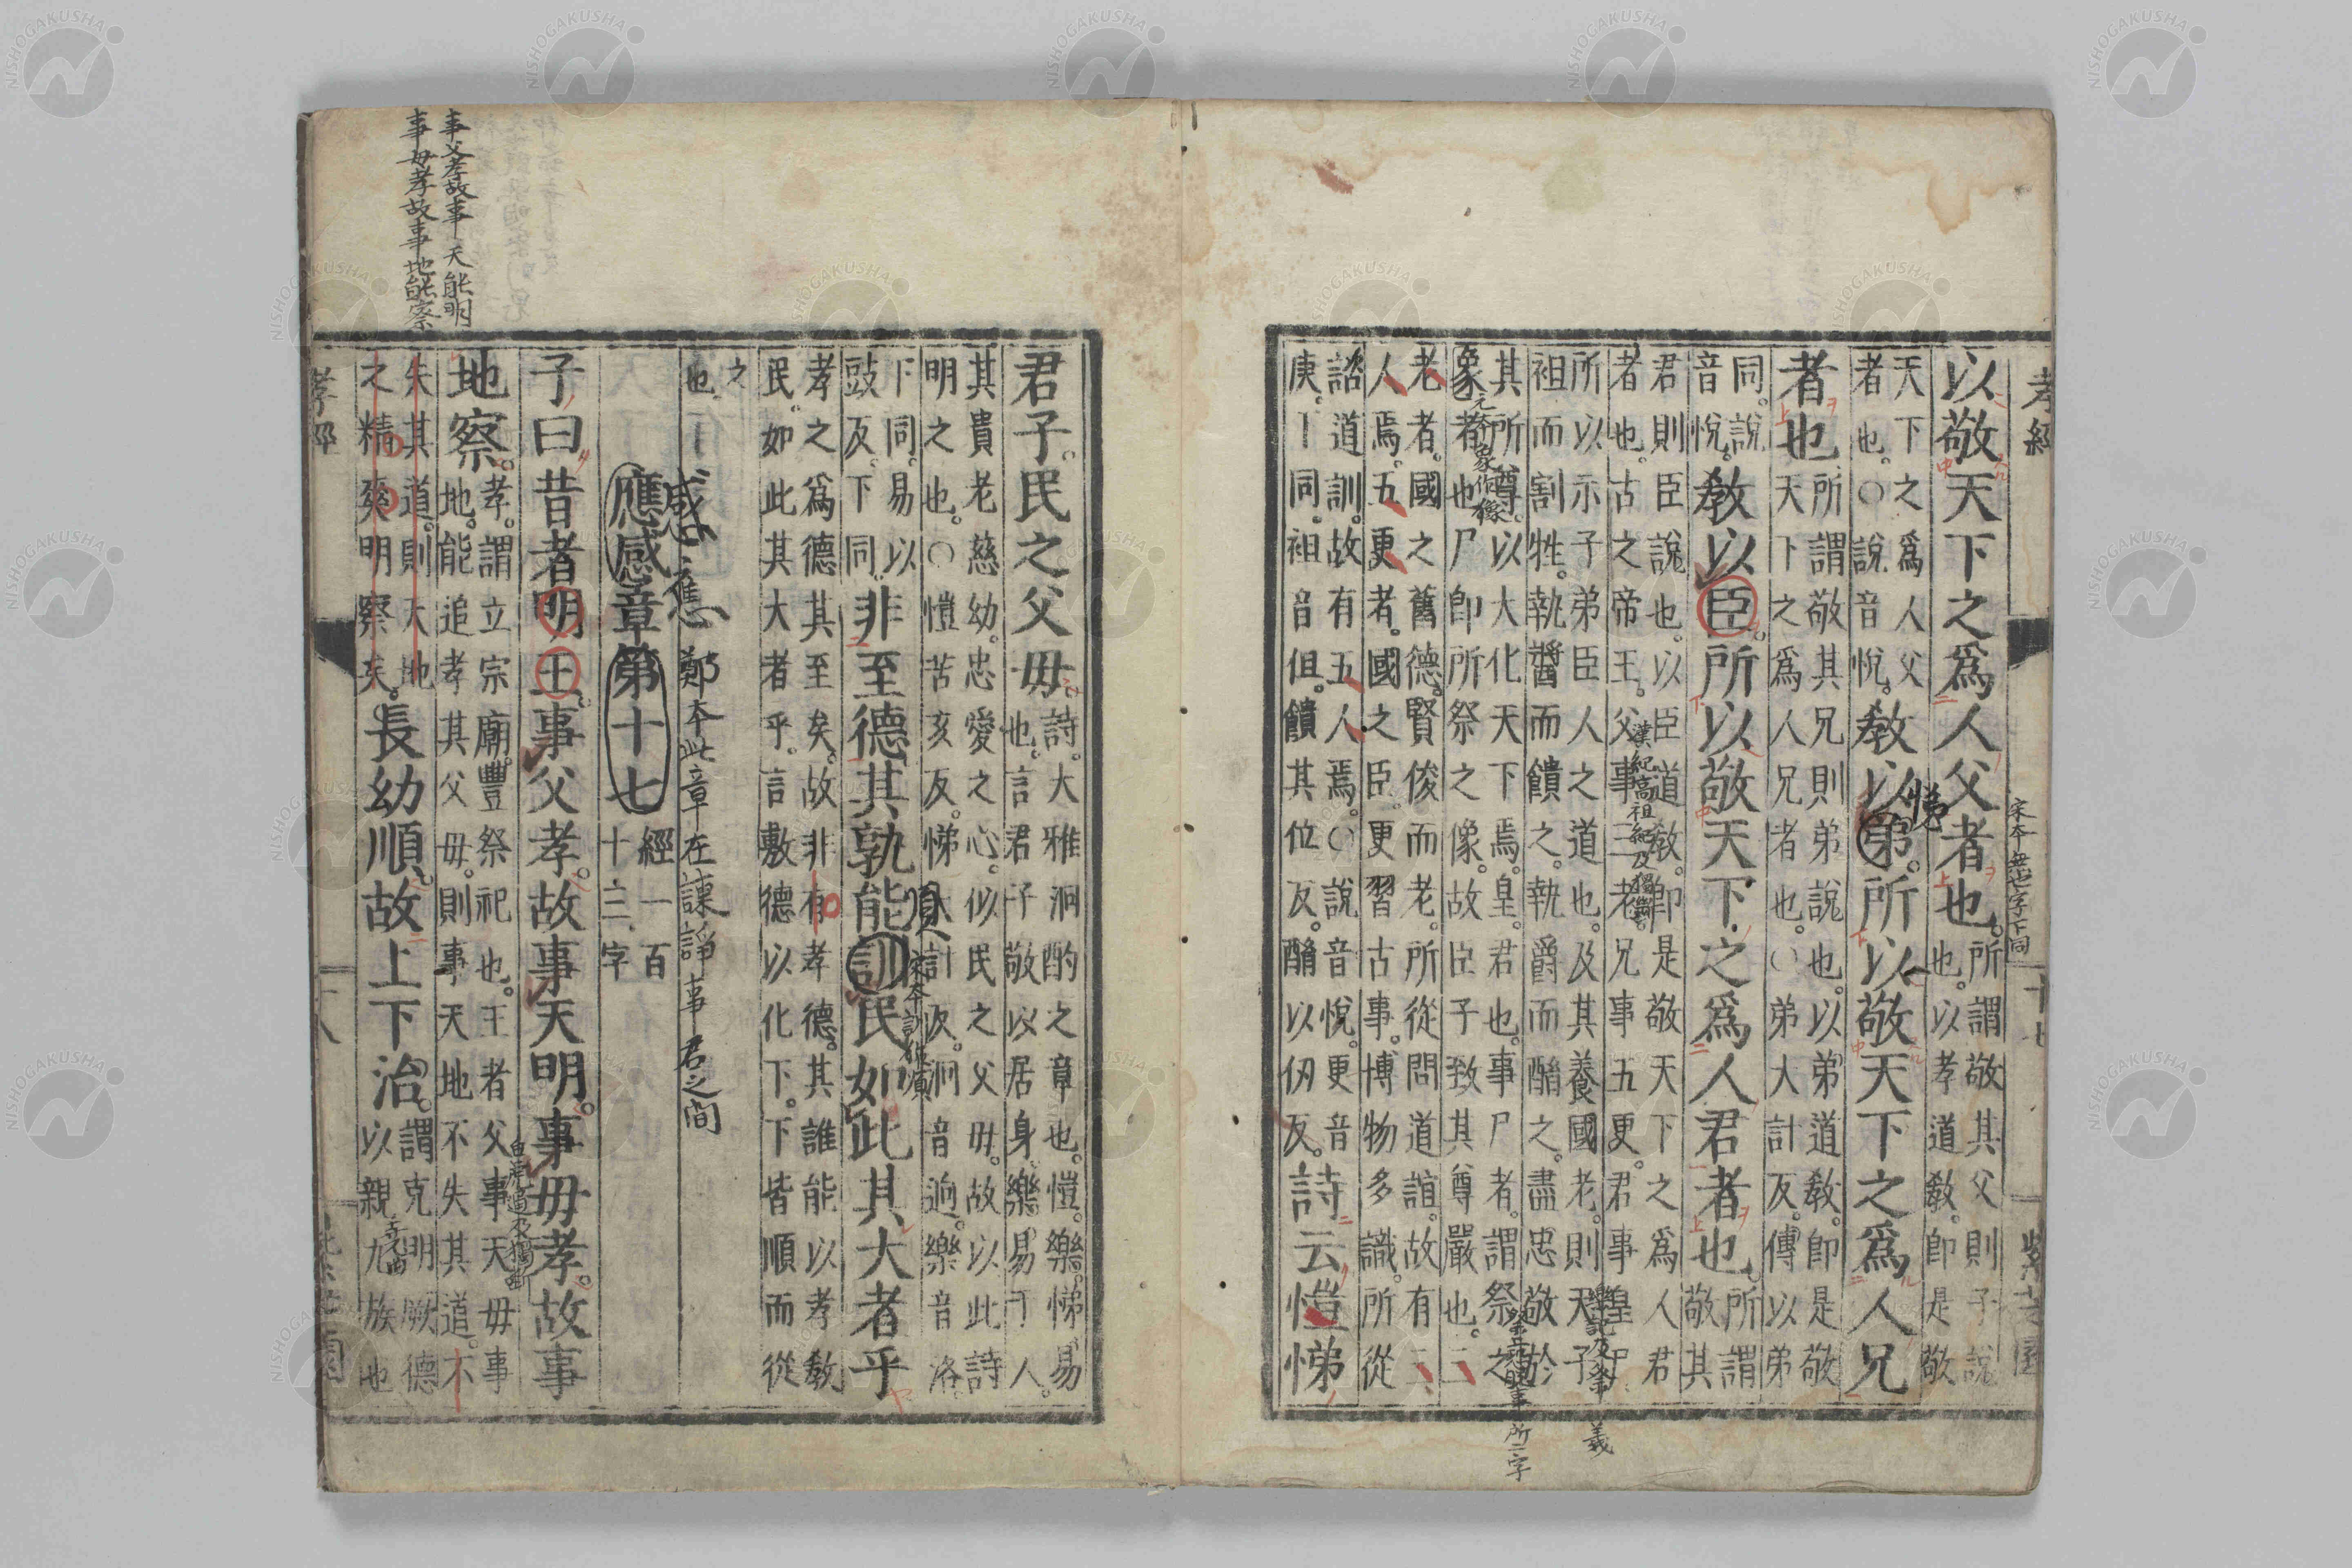 孝經
十七
紫芝園
宋本無也字下同
以敬天下之爲人父者也。所謂敬其父則子說
也。以孝道敎。即是敬
天下之爲人父
者也。○說音悅。敎以弟。所以敬天下之爲人兄
悌
者也所謂敬其兄則弟說也。以弟道敎。即是敬
天下之爲人兄者也。○弟大計反。傳以弟
同。說
音悅。敎以臣。所以敬天下之爲人君者也。所謂
敬其
君則臣說也。以臣道敎。即是敬天下之爲人君
者也。古之帝王。父事三老。兄事五更。君事皇尸。
漢紀高祖紀及獨斷
所以示子弟臣人之道也。及其養國老。則天子
袒而割牲。執醬而饋之。執爵而酳之。盡忠敬於
其所尊。以大化天下焉。皇。君也。事尸者。謂祭之
象者也。尸即所祭之像。故臣子致其尊嚴也。三
老者。國之舊德。賢俊而老。所從問道誼。故有三
人焉。五更者。國之臣。更習古事。博物多識。所從
諮道訓。故有五人焉。○說音悅。更音
庚。丨同。袒音但。饋其位反。酳以仞反。詩云愷悌
君子。民之父母詩。大雅泂酌之章也。愷。樂。悌。易
也。言君子敬以居身。樂易于人。
其貴老慈幼。忠愛之心。似民之父母。故以此詩
明之也。○愷苦亥反。悌大計反。泂音迥。樂音洛。
下同。易以
豉反。下同。非至德其孰能訓民如此其大者乎
順
宋本訓作順
孝之爲德其至矣。故非有孝德。其誰能以孝敎
民。如此其大者乎。言敷德以化下。下皆順而從
之
也。
感應 鄭本此章在諫諍事君之間
應感章第十七經一百
十三字
子曰昔者明王。事父孝。故事天明。事母孝。故事
地察。孝。謂立宗廟。豐祭祀也。王者父事天母事
地。能追孝其父母。則事天地不失其道。不
白虎通及獨斷
失其道。則天地
之精爽明察矣。長幼順。故上下治。謂克明厥德
以親九族也
事父孝故事天能明
事母孝故事地能察
十八